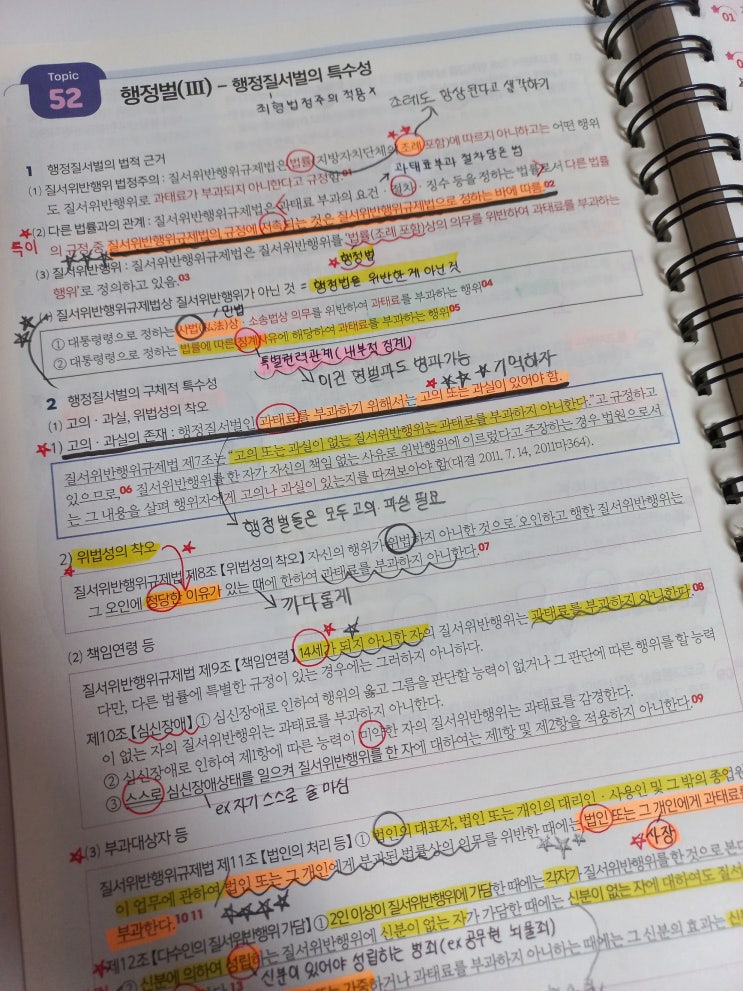 Topic
52
행정벌(III) - 행정질서벌의 특수성
죄형법정주의 적용 x
조례도 항상된다고 생각하기
1 행정질서벌의 법적 근거
(1) 질서위반행위 법정주의 : 질서위반행위규제법은 법률(지방자치단체의 조례 포함)에 따르지 아니하고는 어떤 행위
도 질서위반행위로 과태료가 부과되지 아니한다고 규정함 01
과태료부과 절차담은 법
(2) 다른 법률과의 관계 : 질서위반행위규제법은 과태료 부과의 요건·절차·징수 등을 정하는 법률로서 다른 법률
특이
의 규정 중 질서위반행위규제법의 규정에 저촉되는 것은 질서위반행위규제법으로 정하는 바에 따름.02
(3) 질서위반행위 : 질서위반행위규제법은 질서위반행위를 '법률(조례 포함)상의 의무를 위반하여 과태료를 부과하는
행위'로 정의하고 있음.03
행정법
(4) 질서위반행위규제법상 질서위반행위가 아닌 것 = 행정법을 위반한 게 아닌 것
민법
① 대통령령으로 정하는 사법(私法)상·소송법상 의무를 위반하여 과태료를 부과하는 행위04
② 대통령령으로 정하는 법률에 따른 징계사유에 해당하여 과태료를 부과하는 행위05
특별권력관계 (내부적 징계)
이건 형벌과도 병과가능
2 행정질서벌의 구체적 특수성
기억하자
(1) 고의·과실, 위법성의 착오
1) 고의·과실의 존재 : 행정질서벌인 과태료를 부과하기 위해서는 고의 또는 과실이 있어야 함.
질서위반행위규제법 제7조는 "고의 또는 과실이 없는 질서위반행위는 과태료를 부과하지 아니한다."고 규정하고
있으므로,06 질서위반행위를 한 자가 자신의 책임 없는 사유로 위반행위에 이르렀다고 주장하는 경우 법원으로서
는 그 내용을 살펴 행위자에게 고의나 과실이 있는지를 따져보아야 함(대결 2011. 7. 14, 2011마364).
행정벌들은 모두 고의 과실 필요
2) 위법성의 착오
질서위반행위규제법 제8조【위법성의 착오】 자신의 행위가 위법하지 아니한 것으로 오인하고 행한 질서위반행위는
그 오인에 정당한 이유가 있는 때에 한하여 과태료를 부과하지 아니한다.07
까다롭게
(2) 책임연령 등
질서위반행위규제법 제9조【책임연령】 14세가 되지 아니한 자의 질서위반행위는 과태료를 부과하지 아니한다.08
다만, 다른 법률에 특별한 규정이 있는 경우에는 그러하지 아니하다.
제10조【심신장애】 ① 심신장애로 인하여 행위의 옳고 그름을 판단할 능력이 없거나 그 판단에 따른 행위를 할 능력
이 없는 자의 질서위반행위는 과태료를 부과하지 아니한다.
② 심신장애로 인하여 제1항에 따른 능력이 미약한 자의 질서위반행위는 과태료를 감경한다.
③ 스스로 심신장애상태를 일으켜 질서위반행위를 한 자에 대하여는 제1항 및 제2항을 적용하지 아니한다.09
ex 자기 스스로 술 마심
(3) 부과대상자 등
질서위반행위규제법 제11조【법인의 처리 등】 ① 법인의 대표자, 법인 또는 개인의 대리인·사용인 및 그 밖의 종업원
이 업무에 관하여 법인 또는 그 개인에게 부과된 법률상의 의무를 위반한 때에는 법인 또는 그 개인에게 과태료를
사장
부과한다.10 11
제12조【다수인의 질서위반행위 가담】 ① 2인 이상이 질서위반행위에 가담한 때에는 각자가 질서위반행위를 한 것으로 본다
② 신분에 의하여 성립하는 질서위반행위에 신분이 없는 자가 가담한 때에는 신분이 없는 자에 대하여도 질서
13 신분이 있어야 성립하는 범죄 (ex 공무원 뇌물죄)
가중하거나 과태료를 부과하지 아니하는 때에는 그 신분의 효과는 신